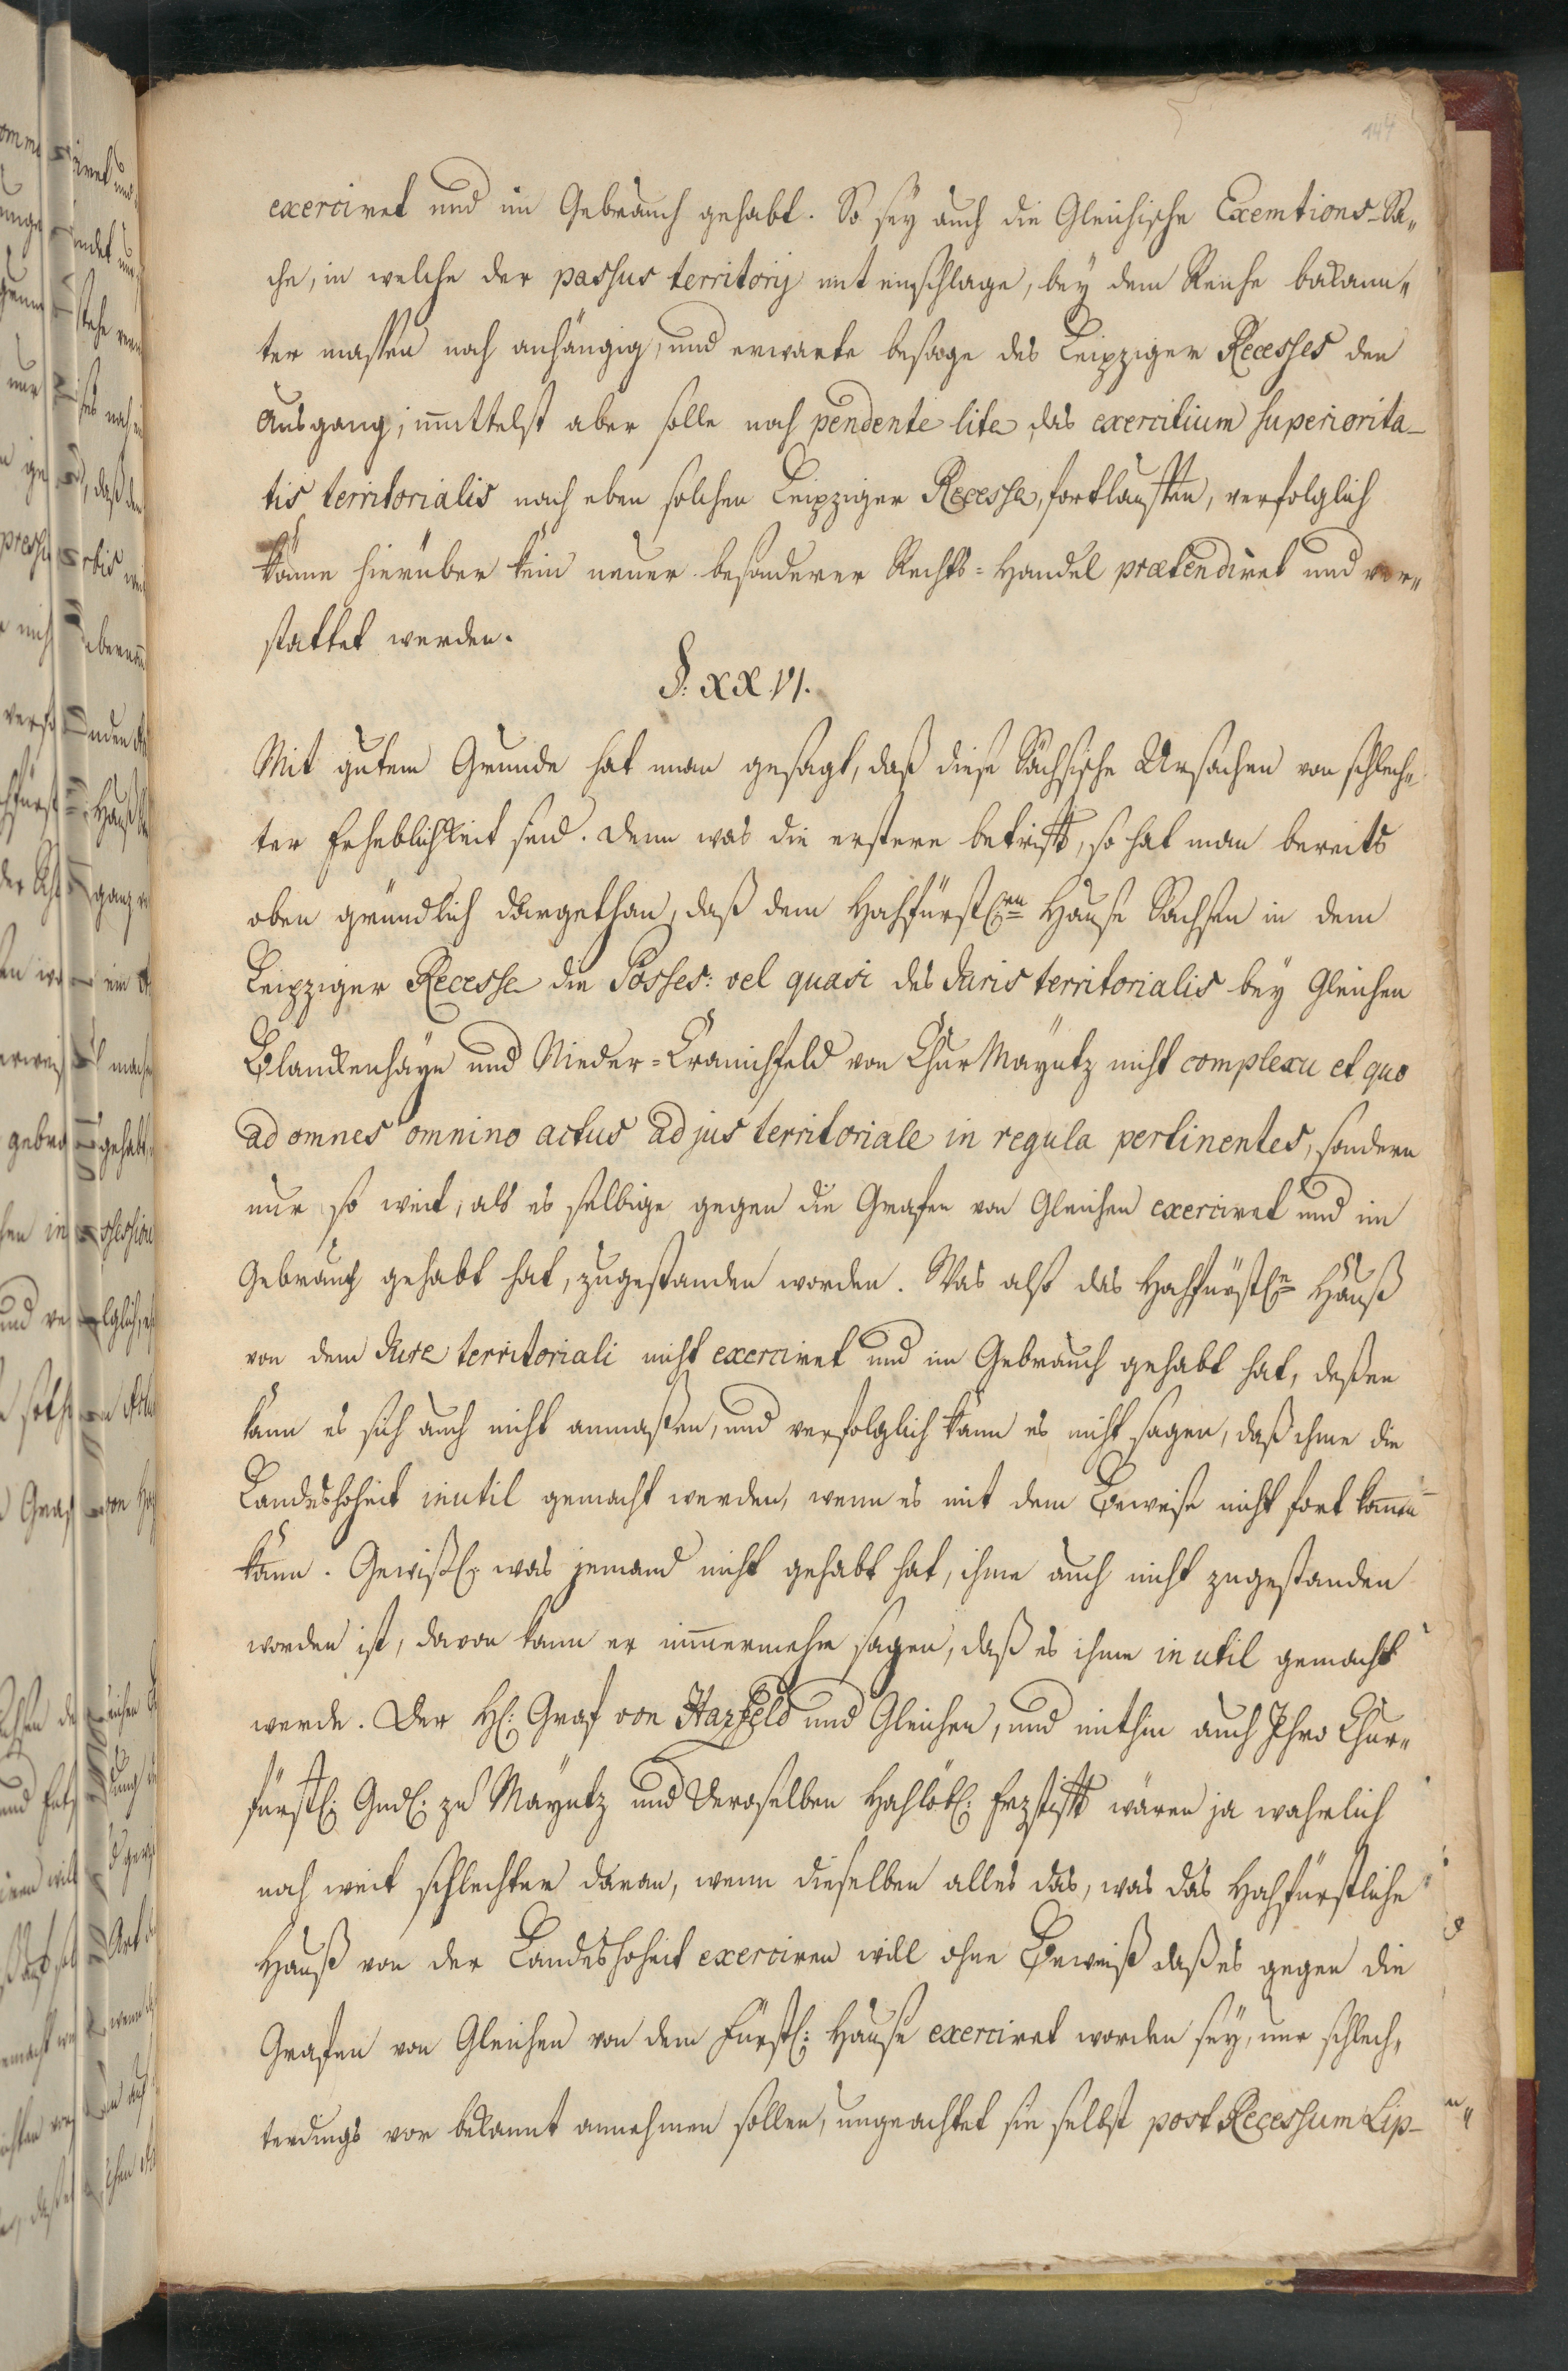 144
exerciret und im Gebrauch gehabt. So seÿ auch die Gleichische Exemtions-Sa„
che, in welche der passus territorij mit einschlage, beÿ dem Reiche bekann„
ter massen noch anhängig, und erwarte besage des Leipziger Recesses den
Ausgang, immittelst aber solle noch pendente lite, das exercitium superiorita-
tis territorialis nach eben solchen Leipziger Recesse, fortlauffen, verfolglich
könne hierüber kein neuer besonderer Rechts-Handel prætendiret und ver„
stattet werden.
§. XXVI.
Mit gutem Grunde hat man gesagt, daß diese Sächsische Ursachen von schlech„
ter Erheblichkeit sind. Denn was die erstere betrifft, so hat man bereits
oben gründlich dargethan, daß dem Hochfürstl:en Hause Sachsen in dem
Leipziger Recesse die Posses: vel quasi des Juris territorialis beÿ Gleichen
Blanckenhäÿn und Nieder-Cranichfeld von Chur Mayntz nicht complexu et quo
ad omnes omnino actus ad jus territoriale in regula pertinentes, sondern
nur so weit, als es selbige gegen die Grafen von Gleichen exerciret und im
Gebrauch gehabt hat, zugestanden worden. Was also das Hochfürstl:e Hauß
von dem Jure territoriali nicht exerciret und im Gebrauch gehabt hat, deßen
kann es sich auch nicht anmaßen, und verfolglich kann es nicht sagen, daß ihme die
Landeshoheit inutil gemacht werden, wenn es mit dem Beweise nicht fort kommen
kann. Gewißl: was jemand nicht gehabt hat, ihme auch nicht zugestanden
worden ist, davon kann er immermehr sagen, daß es ihme in util gemacht
werde. Der H: Graf von Hazfeld und Gleichen, und mithin auch Ihro Chur„
fürstl: Gnd: zu Mayntz und Deroselben Hochlöbl: Erzstifft wären ja wahrlich
noch weit schlechter daran, wenn dieselben alles das, was das Hochfürstliche
Hauß von der Landeshoheit exerciren will ohne Beweiß daß es gegen die
Grafen von Gleichen von dem Fürstl: Hause exerciret worden seÿ, nur schlech„
terdings vor bekannt annehmen sollen, ungeachtet sie selbst post Recessum Lip-